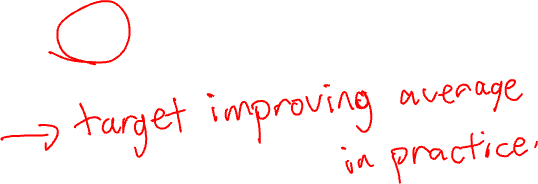 → target improving average
in practice.